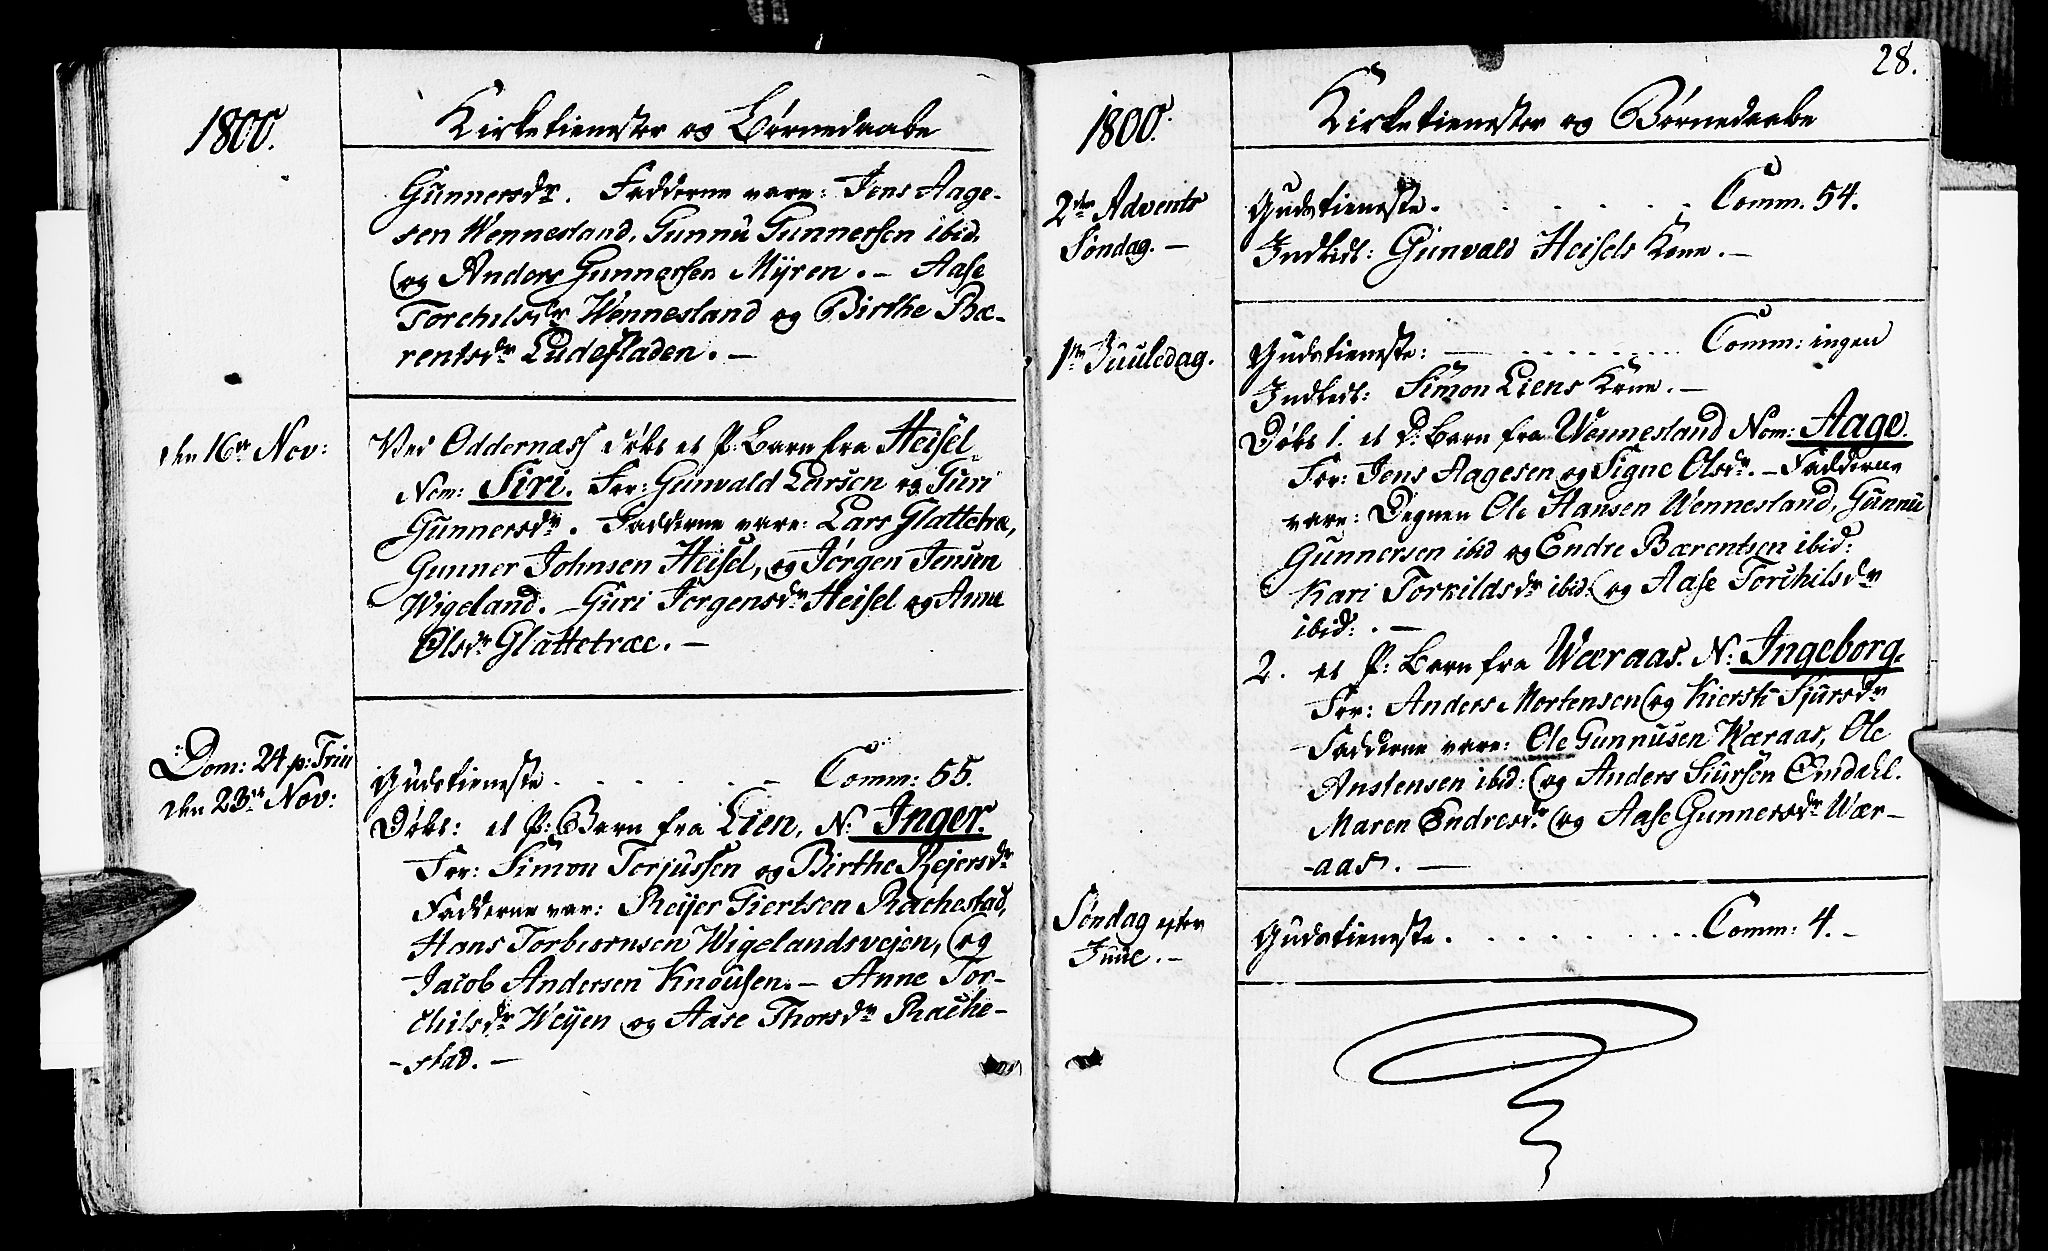 1800.
Kirketienester og Børnedaabe
Gunnersdr. Fadderne vare: Jens Aage-
sen Wennesland, Gunnu Gunnersen ibid.
og Anders Gunnersen Myren. – Aase
Torchilsdr Wennesland og Birthe Bæ-
rentsdr Ludefladen. –
den 16de Nov:
Ved Oddernæss døbt et P: Barn fra Heisel
Nom: Siri. For: Gunvald Larsen og Guri
Gunnersdr. Fadderne vare: Lars Glattetræ,
Gunner Johnsen Heisel, og Jørgen Jensen
Wigeland. – Guri Jorgensdr Heisel og Anne
Olsdr Glattetræe. –
Dom: 24 p: Trin
den 23de Nov:
Gudstieneste . . . . . . – Comm: 55.
Døbt: et P: Barn fra Lien, N: Inger.
For: Simon Torjussen og Birthe Rejersdr
Fadderne var: Reijer Tiertsen Rachestad,
Hans Torbiørnsen Wigelandsvejen, og
Jacob Andersen Knousen. – Anne Tor-
chilsdr Weijen og Aase Thorsdr Rache-
-stad. –
28.
1800.
Kirketienester og Børnedaabe
2den Advents
Søndag. –
Gudstieneste. . . . . . . Comm. 54.
Indledt: Gunvald Heisels Kone. –
1ste Juuledag.
Gudstieneste: – . . . . . . . . Comm: ingen
Indledt: Simon Liens Kone. –
Døbt 1. et d: Barn fra Wennesland Nom: Aage.
For: Jens Aagesen og Signe Olsdr. – Fadderne
vare: Degnen Ole Hansen Wennesland, Gunnu
Gunnersen ibid og Endre Bærentsen ibid:
Kari Torkildsdr ibid: og Aase Torchilsdr
ibid: . –
2. et P: Barn fra Wæraas. N: Ingeborg.
For: Anders Mortensen og Kiersti Sjursdr
Fadderne vare: Ole Gunnusen Wæraas, Ole
Anstensen ibid: og Anders Siursen Omdahl.
Maren Endresdr og Aase Gunnersdr Wær-
-aas. –
Søndag efter
Juul. –
Gudstieneste. . . . . . . . . . Comm: 4. –